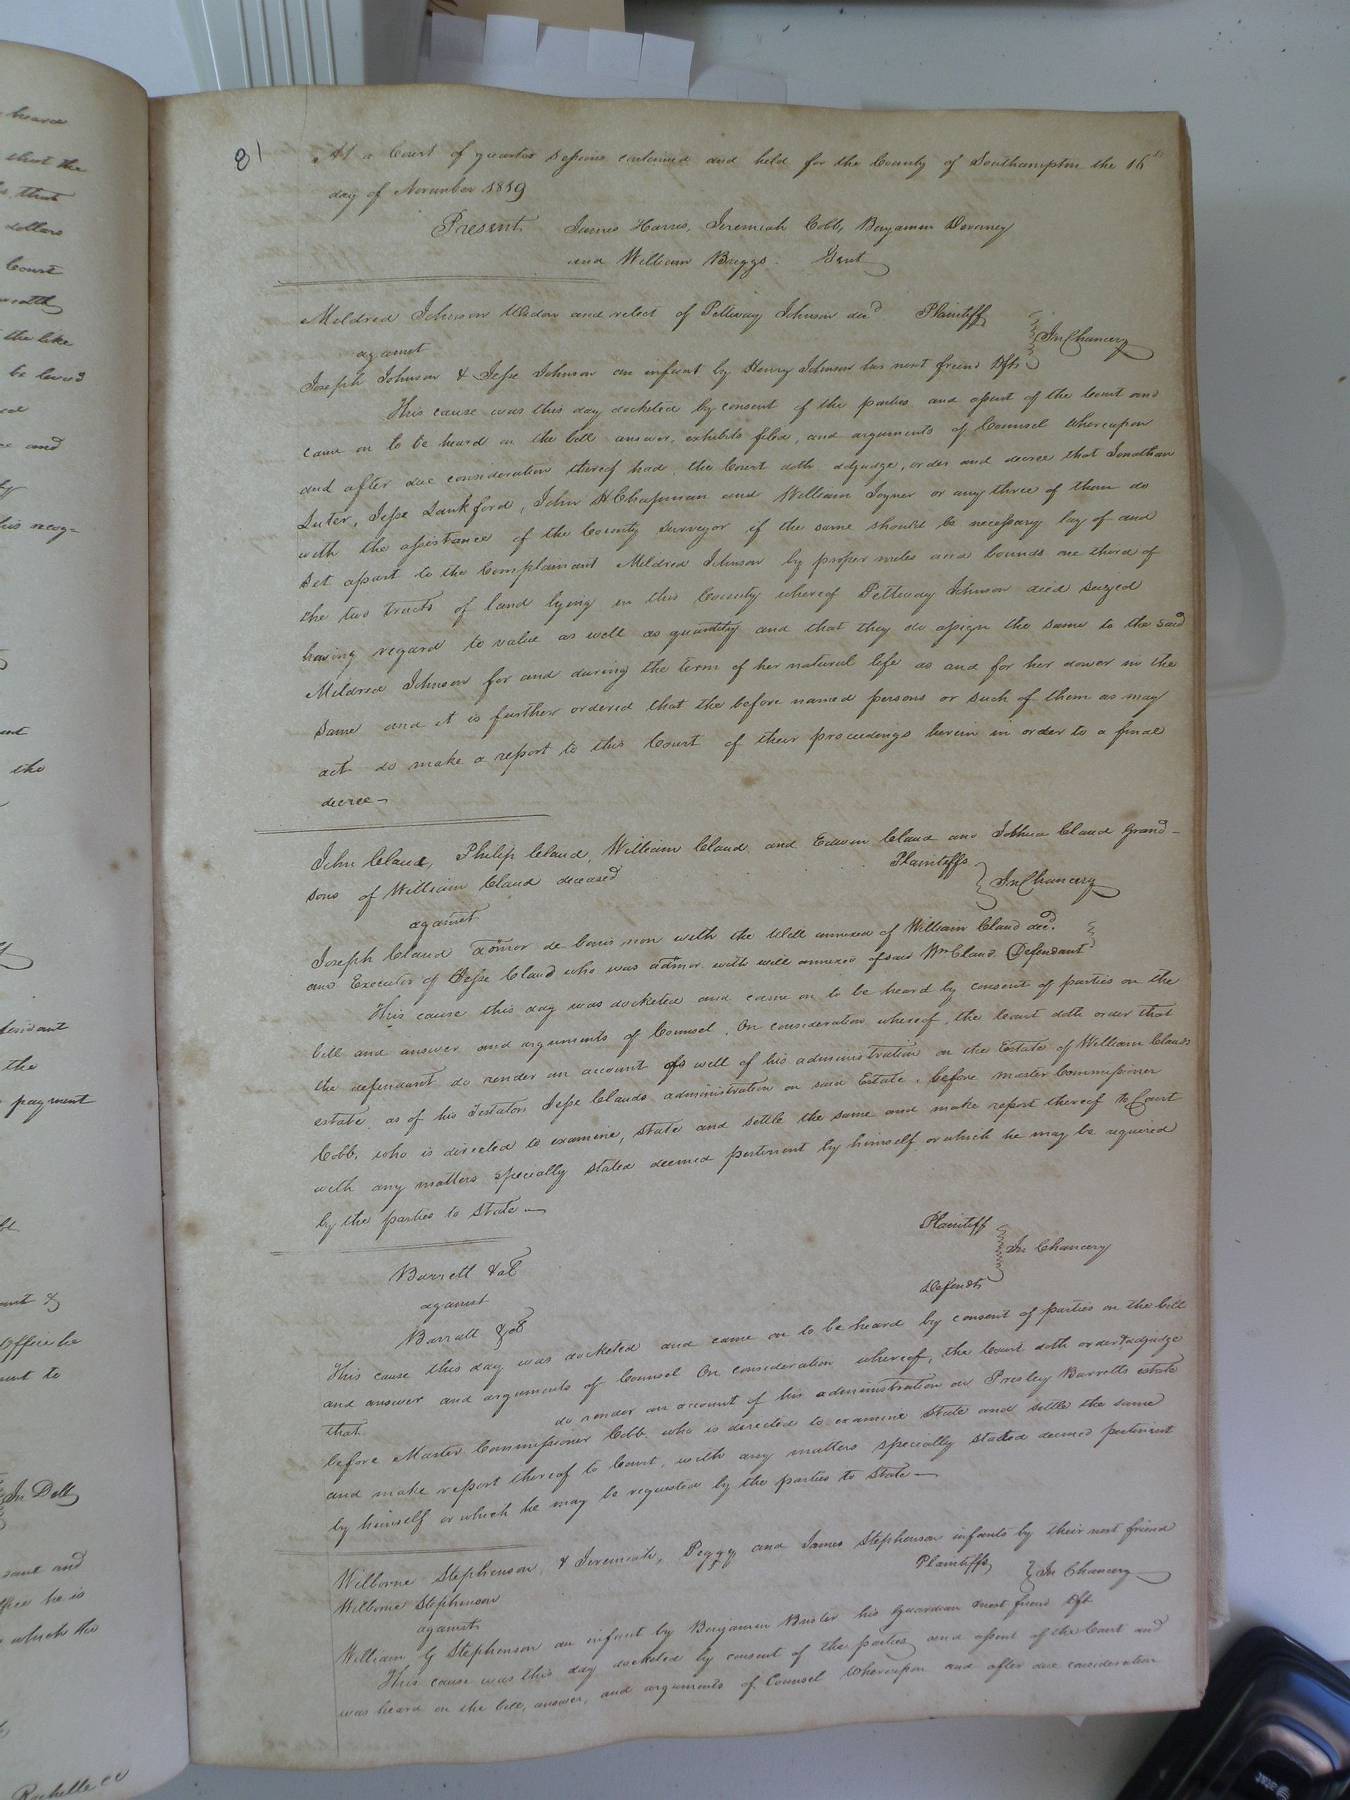 81
At a Court of quarter Sessions continued and held for the County of Southampton the 16th
day of November 1819
Present James Harris, Jeremiah Cobb, Benjamin Devany
and William Briggs. Gent
Mildred Johnson Widow and relect of Pettway Johnson decd Plaintiff
against
In Chancery
Joseph Johnson & Jesse Johnson an infant by Henry Johnson his next friend Dfts
This cause was this day docketed by consent of the parties and assent of the Court and
came on to be heard on the bill answer, exhibits filed, and arguments of Counsel Whereupon
and after due consideration thereof had, the Court doth adjudge, order and decree that Jonathan
Luter, Jesse Lankford, John H Chapman and William Joyner or any three of them do
with the assistance of the County Surveyor if the same should be necessary lay of and
set apart to the Complainant Mildred Johnson by proper metes and bounds one third of
the two tracts of land lying in this County whereof Pettway Johnson died seized
having regard to value as well as quantity and that they do assign the same to the said
Mildred Johnson for and during the term of her natural life as and for her dower in the
same and it is further ordered that the before named persons or such of them as may
act do make a report to this Court of their proceedings herein in order to a final
decree
John Claud, Philip Claud, William Claud, and Edwin Claud and Joshua Claud Grand-
sons of William Claud deceased Plaintiffs
In Chancery
against
Joseph Claud admor de bonis non with the Will annexed of William Claud decd.
and Executor of Jesse Claud who was admor with will annexed of said Wm Claud Defendant
This cause this day was docketed and came on to be heard by consent of parties on the
bill and answer and arguments of Counsel. On consideration whereof, the Court doth order that
the defendant do render an account as well of his administration on the Estate of William Clauds
estate, as of his Testators Jesse Clauds administration on said Estate, before Master Commissioner
Cobb, who is directed to examine, state and settle the same and make report thereof to Court
with any matters specially stated deemed pertinent by himself or which he may be required
by the parties to state
Barrett &al Plaintiff
against
In Chancery
Barrett &al Defendts
This cause this day was docketed and came on to be heard by consent of parties on the bill
and answer and arguments of Counsel On consideration whereof, the Court doth order & adjudge
that do render an account of his administration on Presley Barretts estate
before Master Commissioner Cobb, who is directed to examine State and settle the same
and make report thereof to Court, with any matters specially stated deemed pertinent
by himself or which he may be requested by the parties to state
Wilborne Stephenson, & Jeremiah, Peggy and James Stephenson infants by their next friend
Wilborne Stephenson Plaintiffs
In Chancery
against
William G Stephenson an infant by Benjamin his Guardian & next friend Dft
This cause was this day docketed by consent of the parties and assent of the Court and
was heard on the bill, answer, and arguments of Counsel Whereupon and after due consideration